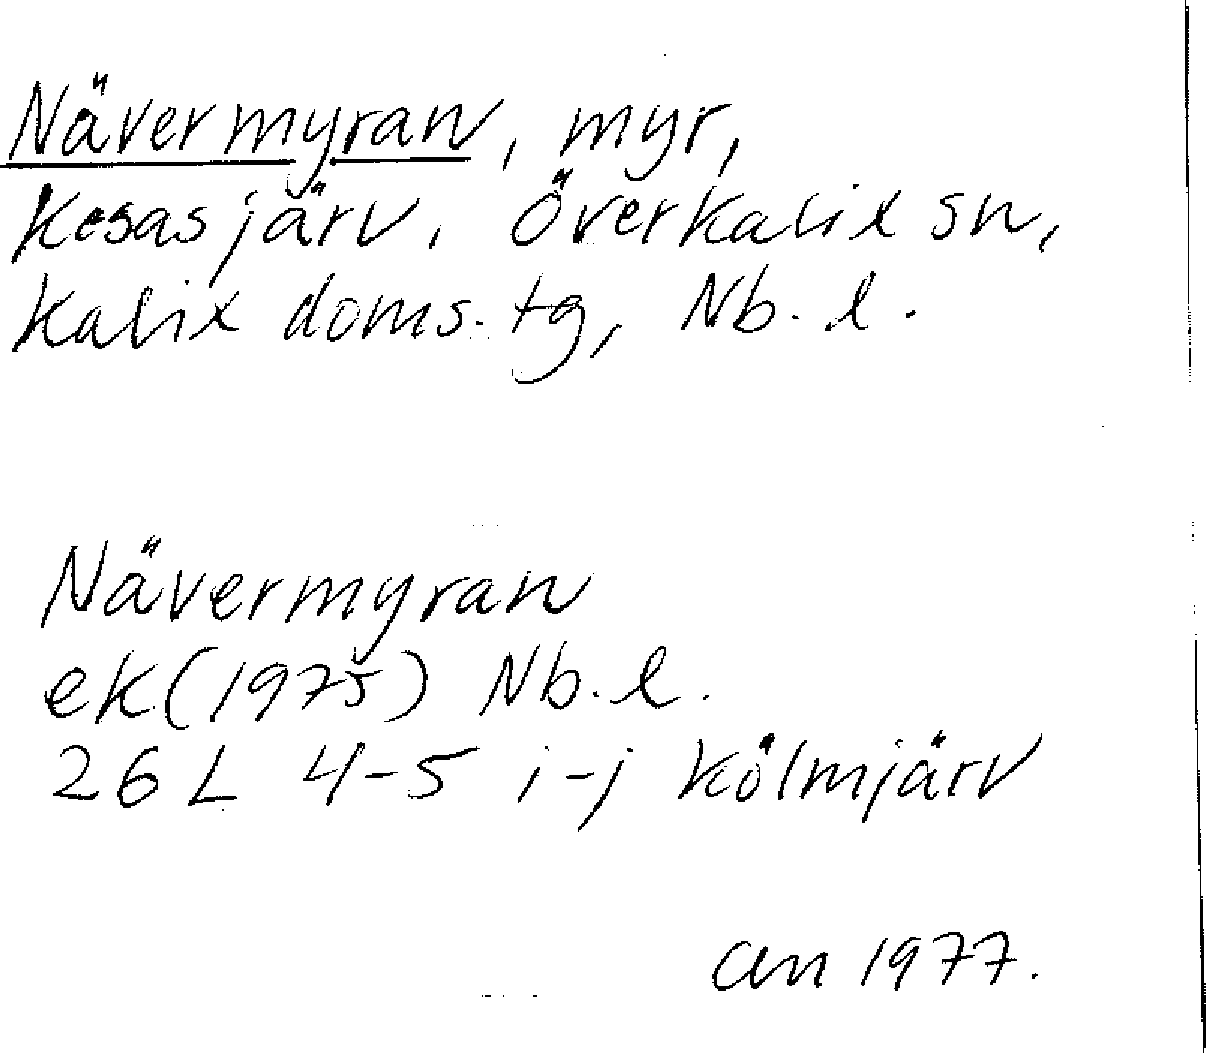 Nävermyran, myr,
Kesasjärv, Överkalix sn,
Kalix doms. tg, Nb. l.
Nävermyran
ek (1975) Nb. l.
26 L 4-5 i-j Kölmjärv
an 1977.